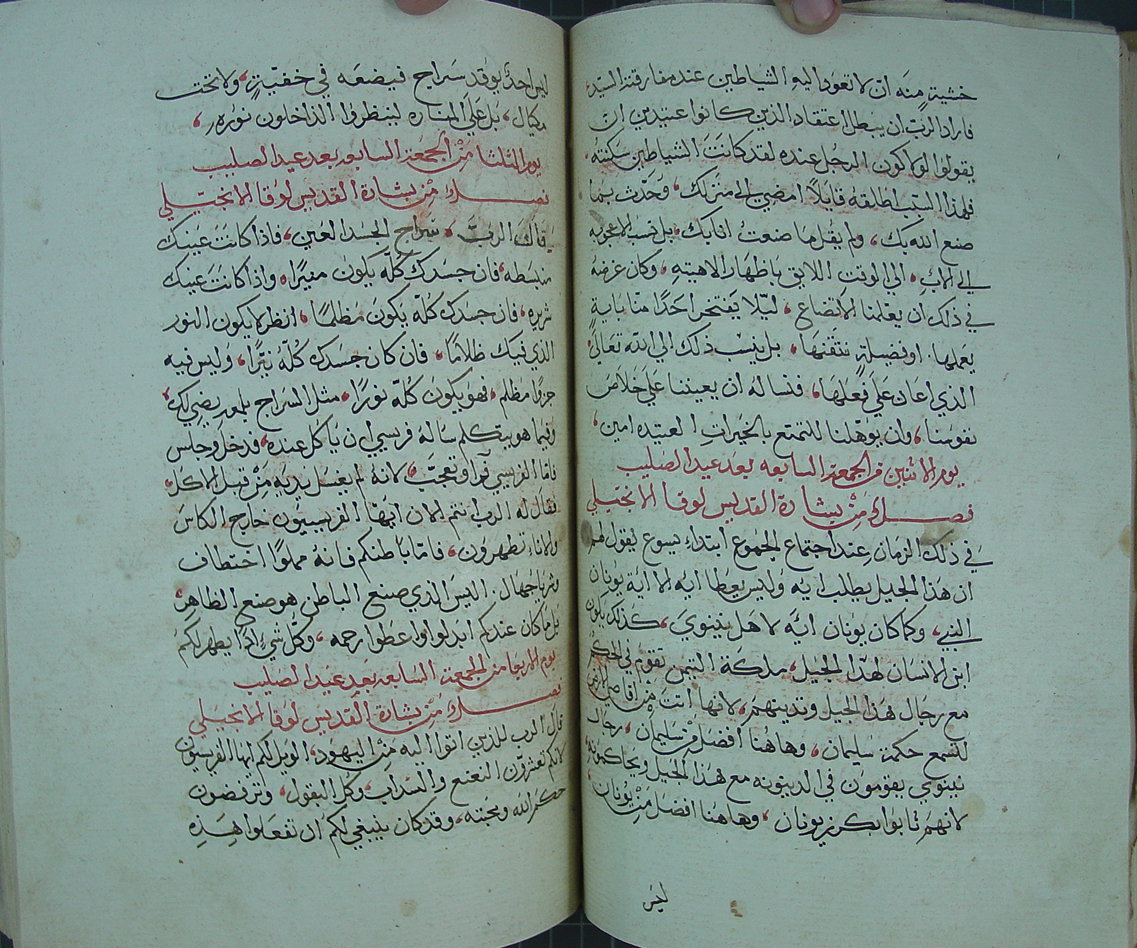 خشية منه ان لا تعود اليه الشياطين عند مفارقته السيد
فاراد الرب ان يبطل اعتقاد الذين كانوا عتيدين ان
يقولوا لولا كون الرجل عنده لقد كانت الشياطين سكنته
فلهذا السبب اطلقه قايلا امضي الي منزلك وحدث بما
صنع الله بك ولم يقل ما صنعت انا بك بل نسب الاعجوبه
الي الاب الي الوقت اللايق باظهار الاهيته وكان غرضه
في ذلك ان يعلمنا الاتضاع ليلا يفتخر احدا منا باية
يعملها او فضيلة بل ينسب ذلك الي الله تعالي
الذي اعاد علي فعلها فنساله ان يعيننا علي خلاص
نفوسنا وان يوهلنا للتمتع بالخيرات العتيده امين
يوم الاتنين من الجمعة السابعه بعد عيد الصليب
فصل من بشارة القديس لوقا الانجيلي
في ذلك الزمان عند اجتماع الجموع ابتداء يسوع يقول لهم
ان هذا الجيل يطلب ايه وليس يعطا ايه الا اية يونان
النبي وكما كان يونان اية لاهل نينوي كذلك يكون
ابن الانسان لهذا الجيل ملكة التيمن تقوم في الحكم
مع رجال هذا الجيل وتدينهم لانها اتت من اقاصي الارض
لتسمع حكمة سليمان وهاهنا افضل من سليمان رجال
نينوي يقومون في الدينونه مع هذا الجيل ويحاكمونه
لانهم تابوا بكرز يونان وهاهنا افضل من يونان
ليس
ليس احد يوقد سراج فيضعه في خفية ولا تحت
مكيال بل علي المناره لينظروا الداخلون نوره
يوم الثلثا من الجمعة السابعه بعد عيد الصليب
فصل من بشارة القديس لوقا الانجيلي
قال الرب سراج الجسد العين فاذا كانت عينك
بسيطه فان جسدك كله يكون منيرا واذا كانت عينك
شريره فان جسدك كله يكون مظلما انظر لا يكون النور
الذي فيك ظلاما فان كان جسدك كله نيرا وليس فيه
جزوا مظلم فهو يكون كله نورا مثل السراج يلمع يضي لك
وفيما هو يتكلم ساله فريسي ان ياكل عنده فدخل وجلس
فاما الفريسي تعجب لانه لم يغسل يديه من قبل الاكل
فقال له الرب انتم الان ايها الفريسيون خارج الكاس
والاناء تطهرون فاما باطنكم فانه مملوا اختطاف
وشر يا جهال اليس الذي صنع الباطن هو صنع الظاهر
بل ما كان عندكم اعطوا رحمه وكل شي يطهر لكم
يوم الاربعا من الجمعة السابعه بعد عيد الصليب
فصل من بشارة القديس لوقا الانجيلي
قال الرب للذين اتوا اليه من اليهود الويل لكم ايها الفريسيون
لانكم تعشرون النعنع والسداب وكل البقول وترفضون
حكم الله ومحبته وقد كان ينبغي لكم ان تفعلوا هذه